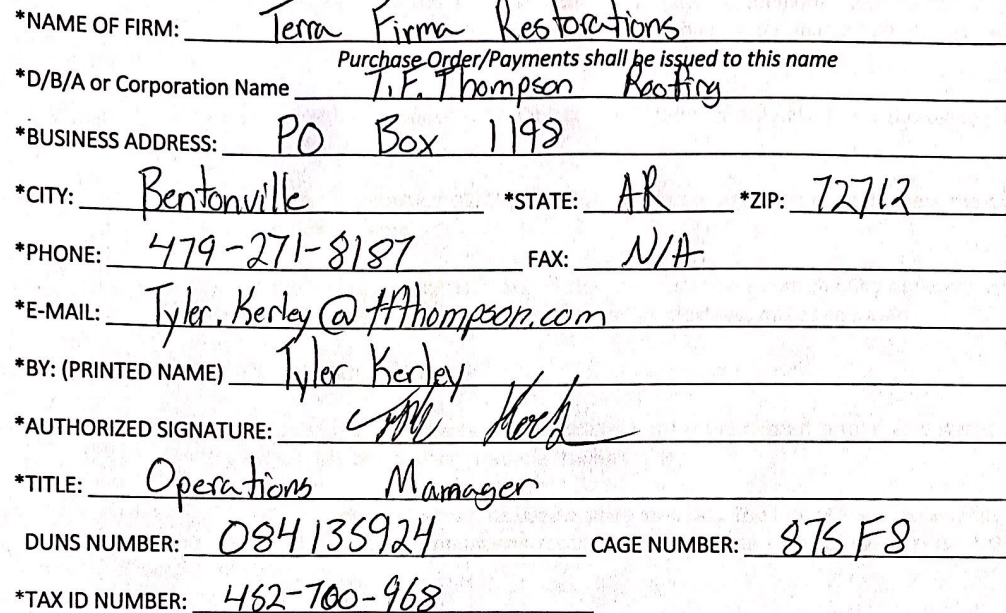 *NAME OF FIRM: Terra Firma Restorations
Purchase Order/Payments shall be issued to this name
*D/B/A or Corporation Name T.F. Thompson Roofing
*BUSINESS ADDRESS: PO Box 1198
*CITY: Bentonville *STATE: AR *ZIP: 72712
*PHONE: 479-271-8187 FAX: N/A
*E-MAIL: Tyler.Kerley@tfthompson.com
*BY: (PRINTED NAME) Tyler Kerley
*AUTHORIZED SIGNATURE:
*TITLE: Operations Manager
DUNS NUMBER: 084135924 CAGE NUMBER: 875F8
*TAX ID NUMBER: 462-700-968